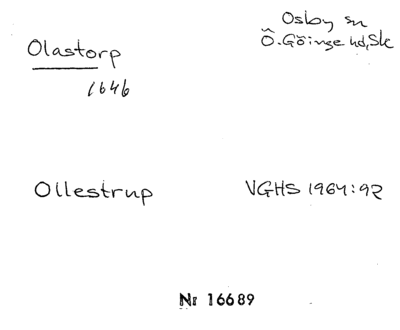 Olastorp
1646
Osby sn
Ö. Göinge hd, Sk
Ollestrup
VGHS 1964:92
Nr 16689